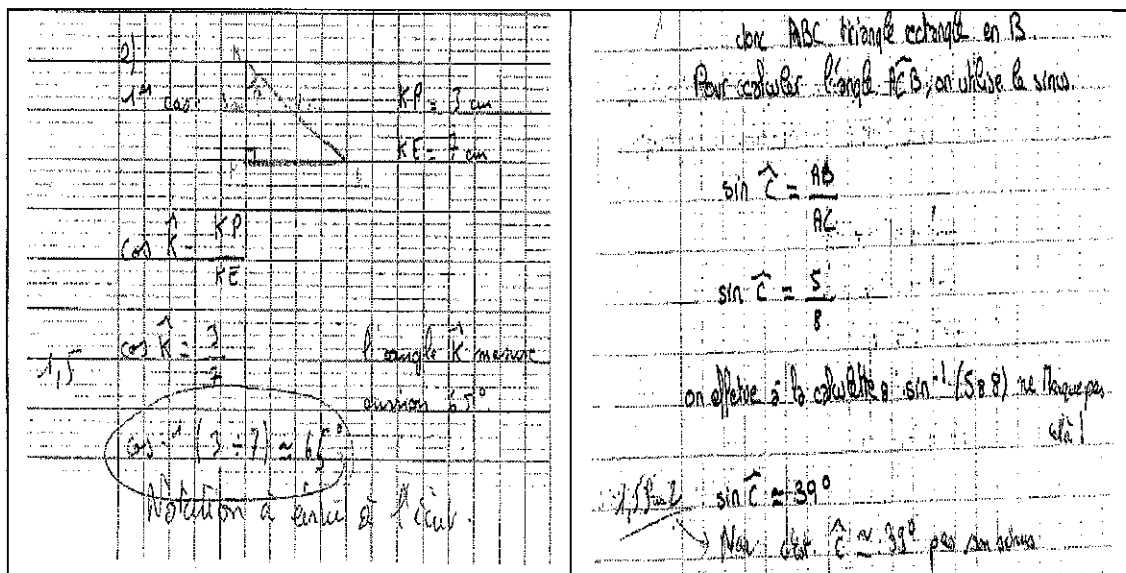 2)
1er cas
KP = 3 cm
KE = 7 cm
cos K̂ = KP / KE
cos K̂ = 3 / 7
l'angle K̂ mesure
environ 65°.
1,5
cos⁻¹ (3 ÷ 7) ≃ 65°
Notation à éviter à l'écrit.
donc ABC triangle rectangle en B.
Pour calculer l'angle ACB, on utilise le sinus.
sin Ĉ = AB / AC
sin Ĉ = 5 / 8
on effectue à la calculatrice sin⁻¹ (5÷8) ne marque pas
cela !
1,5 sur 2
sin Ĉ ≃ 39°
→ Non c'est Ĉ ≃ 39° pas son sinus